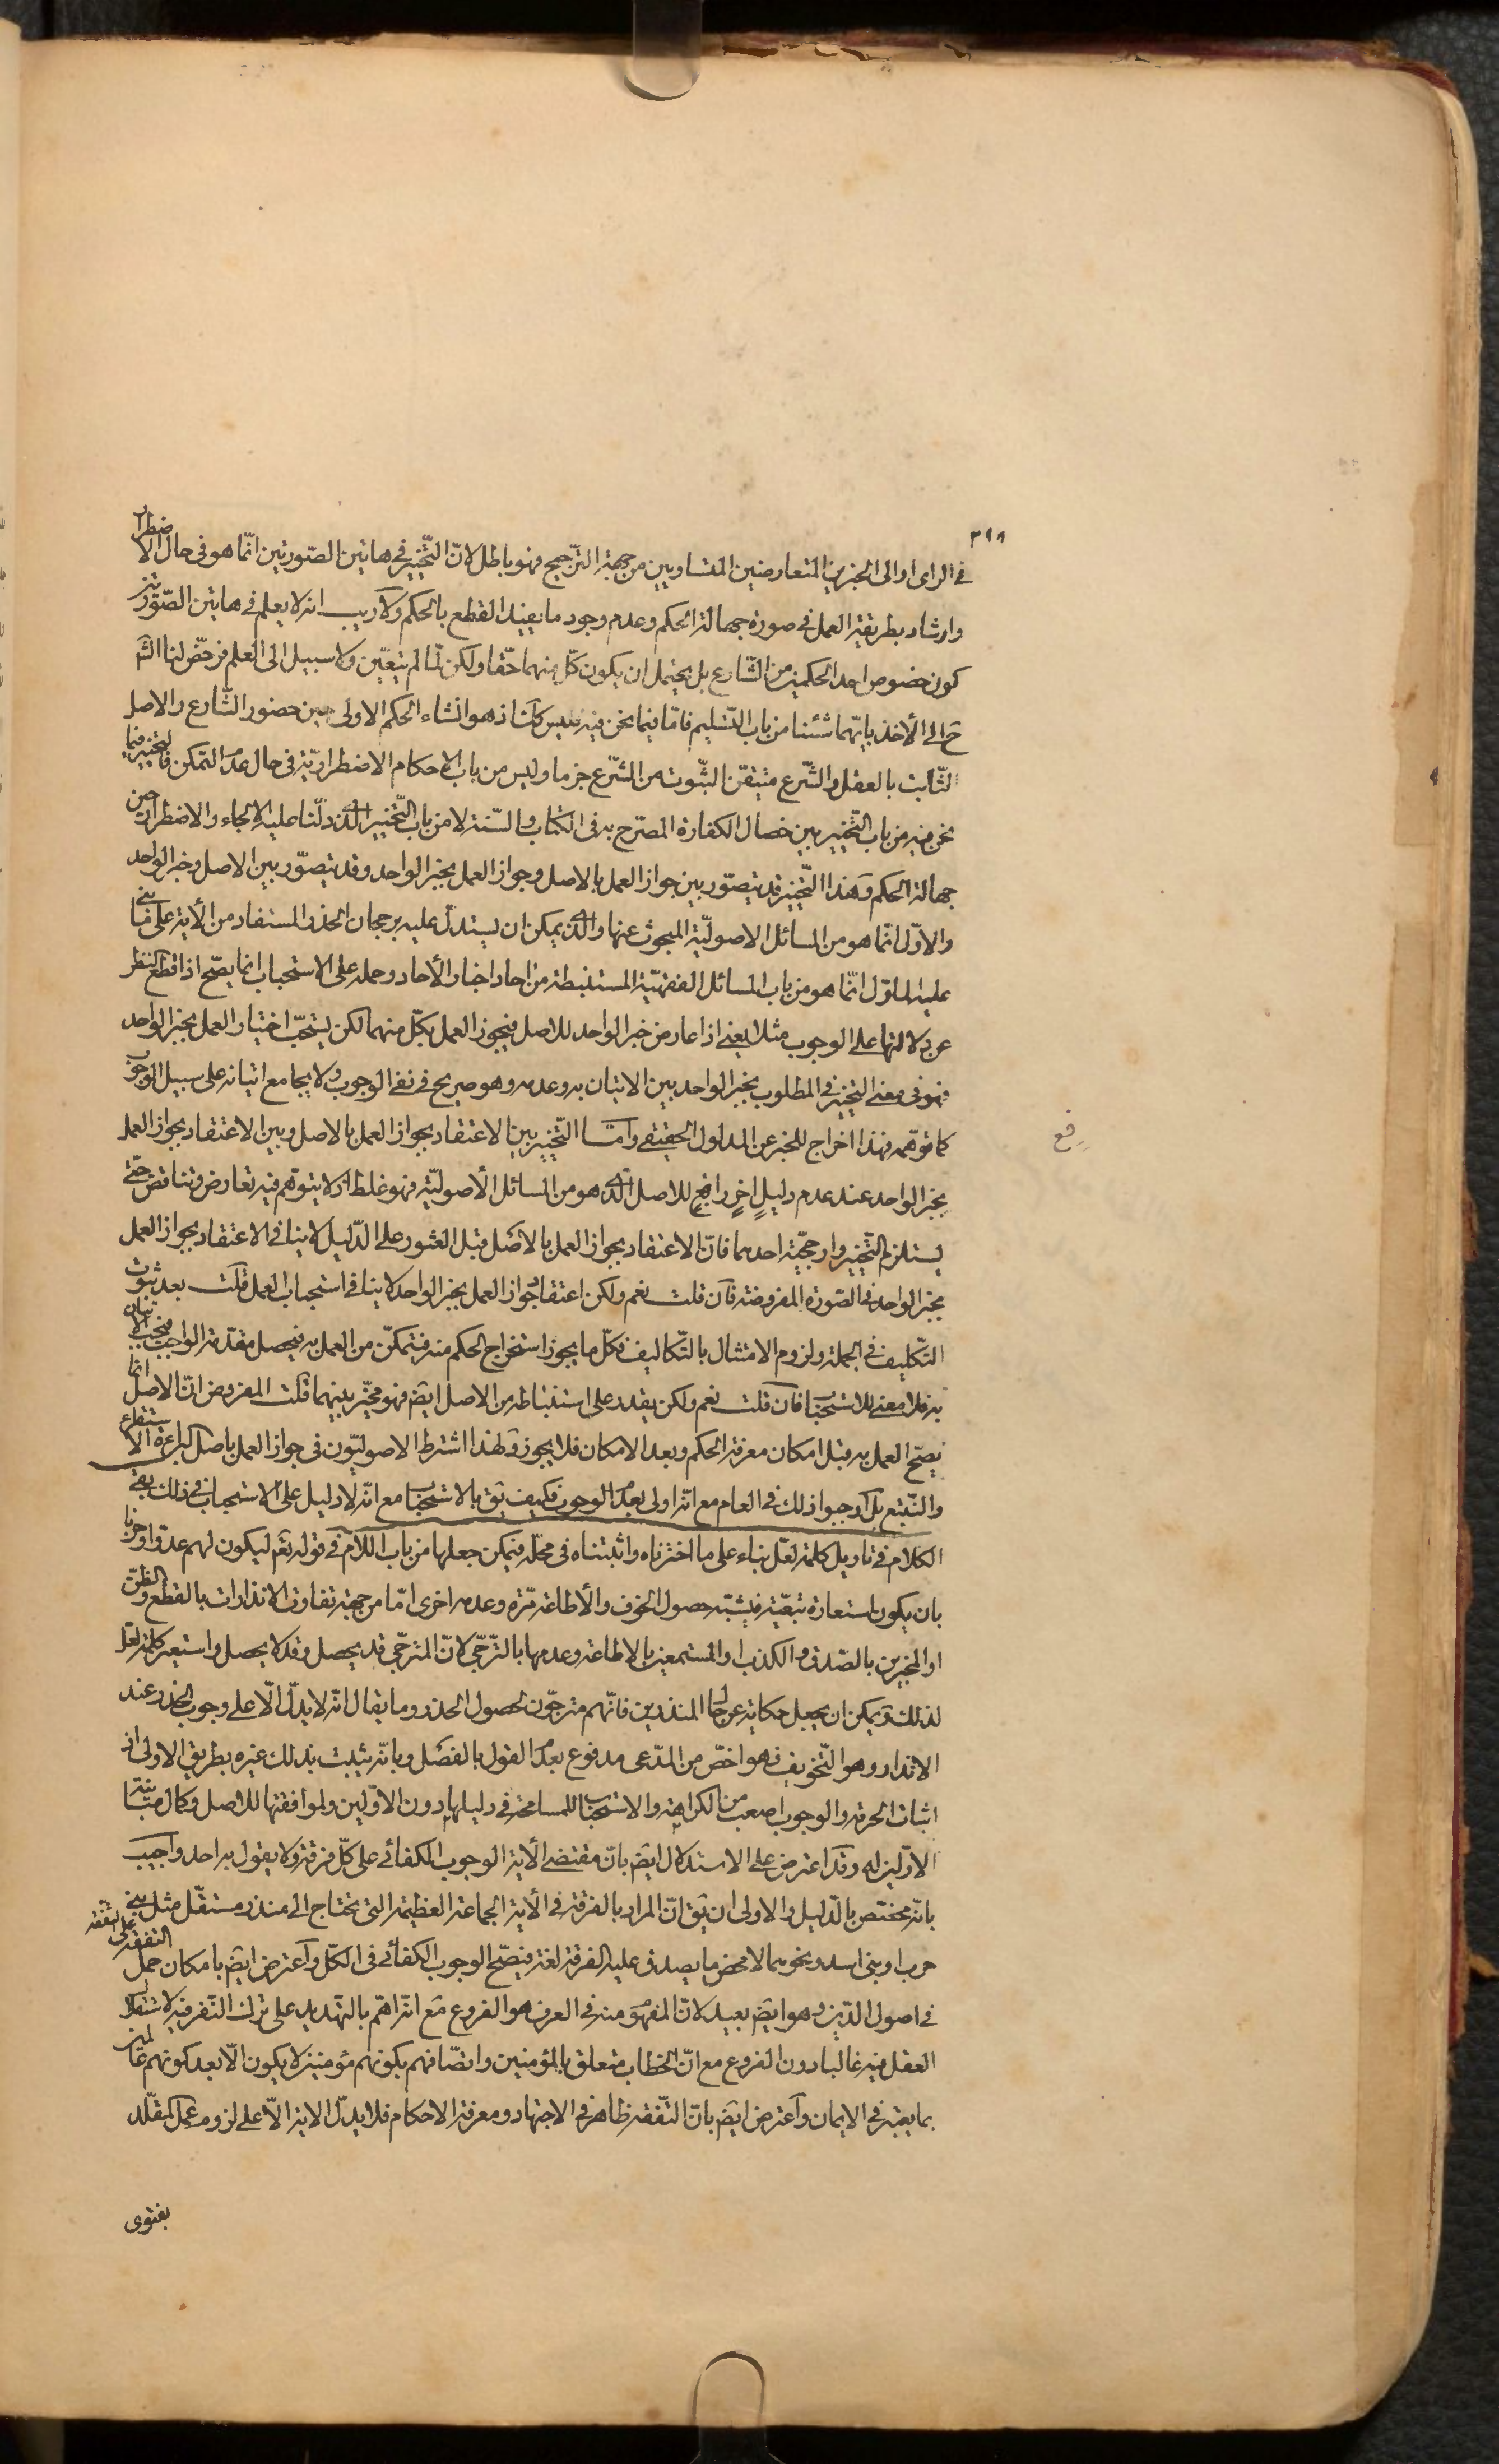 ٣٩٨
في الراى او الى الخبرين المتعارضين المتساويين من جهة الترجيح فهو باطل لانّ التّخيير في هاتين الصّورتين انّما هو فى حال الاضطرار
وارشاد بطريقة العمل في صورة جهالة الحكم وعدم وجود ما يفيد القطع بالحكم ولا ريب انه لا يعلم في هاتين الصّورتين
كون خصوص احد الحكمين من الشّارع بل يحتمل ان يكون كلّ منهما حقّا ولكن لمّا لم يتعيّن ولا سبيل الى العلم فرخّص لنا الشّ
ع الى الأخذ بايّهما شئنا من باب التّسليم فامّا فيما نحن فيه فليس كك اذ هو انشاء الحكم الاولى حين حضور الشّارع والاصل
الثّابت بالعقل والشّرع متيقّن الثّبوت من الشّرع جزما وليس من باب الاحكام الاضطراريّة فى حال عدم التمكن فالتخيير فيما
نحن فيه من باب التّخيير بين خصال الكفارة المصرّح به فى الكتاب والسّنة لا من باب التّخيير الذى دلّنا عليه الالجاء والاضطرار حين
جهالة الحكم وهذا التّخيير قد يتصوّر بين جواز العمل بالاصل وجواز العمل بخبر الواحد وقد يتصوّر بين الاصل وخبر الواحد
والاوّل انّما هو من المسائل الاصوليّة المبحوث عنها والذى يمكن ان يستدلّ عليه برجحان الحذر المستفاد من الأية على ما بنى
عليه الماوّل انّما هو من باب المسائل الفقهيّة المستنبطة من احاد اخبار الأحاد وحمله على الاستحباب انما يصحّ اذا قطع النظر
عن دلالتها على الوجوب مثلا يعنى اذا عارض خبر الواحد للاصل فيجوز العمل بكلّ منهما لكن يستحبّ اختيار العمل بخبر الواحد
فهو فى معنى التخيير في المطلوب بخبر الواحد بين الاتيان به وعدمه وهو صريح في نفى الوجوب ولا يجامع اتيانه على سبيل الوجوب
كما توهّمه فهذا اخراج للخبر عن المدلول الحقيقى وامّا التّخيير بين الاعتقاد بجواز العمل بالاصل وبين الاعتقاد بجواز العمل
بخبر الواحد عند عدم دليلٍ اخرٍ رافعٍ للاصل الذى هو من المسائل الأصوليّة فهو غلط اذ لا يتوهّم فيه تعارض وتناقض حتّى
رفع
يستلزم التّخيير وارجحيّة احدهما فانّ الاعتقاد بجواز العمل بالاصل قبل العثور على الدّليل لا ينافى الاعتقاد بجواز العمل
بخبر الواحد في الصّورة المفروضة فان قلت نعم ولكن اعتقاد جواز العمل بخبر الواحد لا ينافى استحباب العمل قلت بعد ثبوت
التّكليف في الجملة ولزوم الامتثال بالتّكاليف فكلّ ما يجوز استخراج الحكم منه فيتمكّن من العمل به فيحصل مقدّمة الواجب فيجب الاتيان
به فلا معنى للاستحباب فان قلت نعم ولكن يقدر على استنباطه من الاصل ايضً فهو مخيّر بينهما قلت المفروض انّ الاصل انّما
يصحّ العمل به قبل امكان معرفة الحكم وبعد الامكان فلا يجوز ولهذا اشترط الاصوليّون فى جواز العمل باصل البراءة الاستقراء
والتّتبع بل اوجبوا ذلك في العام مع انّه اولى بعدم الوجوب فكيف يق بالاستحباب مع انّه لا دليل على الاستحباب في ذلك بقى
الكلام في تاويل كلمة لعلّ بناء على ما اخترناه واثبتناه فى محلّه فيمكن جعلها من باب اللّام في قوله تعً ليكون لهم عدوّا وحزنا
بان يكون استعارة تبعيّة فيشبّه حصول الخوف والأطاعة مرّة وعدمه اخرى امّا من جهة تفاوت الانذارات بالقطع والظنّ
او المخبرين بالصّدق والكذب او المستمعين بالاطاعة وعدمها بالترجّى لانّ المترجّى قد يحصل وقد لا يحصل واستعير كلمة لعلّ
لذلك ويمكن ان يجعل حكاية عن حال المنذرين فانّهم مترجّون لحصول الحذر وما يقال انّه لا يدلّ الّا على وجوب الحذر عند
الانذار وهو التّخويف فهو اخصّ من المدّعى مدفوع بعدم القول بالفصل وبانّه يثبت بذلك غيره بطريق الاولى اذ
اثبات الحرمة والوجوب اصعب من الكراهة والاستحباب للمسامحة في دليلهما دون الاوّلين ولموافقتها للاصل وكمال مباينة
الاوّلين له وقد اعترض على الاستدلال ايضً بانّ مقتضى الأية الوجوب الكفائى على كلّ فرقة ولا يقول به احد واجيب
بانّه مختص بالدّليل والاولى ان يق انّ المراد بالفرقة في الأية الجماعة العظيمة التى تحتاج الى منذر مستقلّ مثل بنى
حرب او بنى اسد ونحوهما لا محض ما يصدق عليه الفرقة لغة فيصّح الوجوب الكفائى فى الكلّ واعترض ايضً بامكان حمل التفقه على التفقه
في اصول الدّين وهو ايضً بعيد لانّ المفهوم منه في العرف هو الفروع مع انّه اهمّ بالتّهديد على ترك النّفر فيه لاستقلال
العقل فيه غالبا دون الفروع مع انّ الخطاب متعلق بالمؤمنين واتصافهم بكونهم مؤمنين لا يكون الّا بعد كونهم عالمين
بما يعتبر في الايمان واعترض ايضً بانّ التّفقه ظاهر في الاجتهاد ومعرفة الاحكام فلا يدلّ الاية الّا على لزوم عمل المقلّد
بفتوى